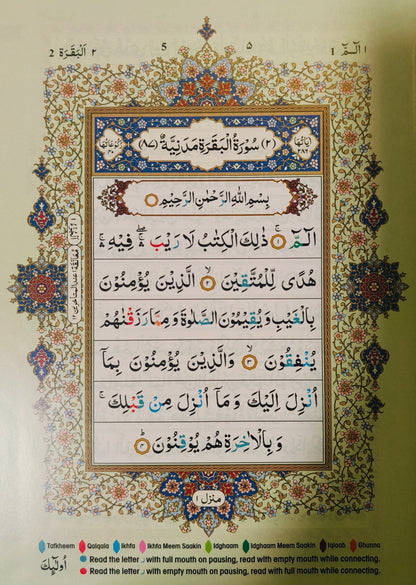 الٓمّٓ ١
٥
5
٢ اَلْبَقَرَة 2
اٰيَاتُهَا ٢٨٦
(٢) سُوْرَةُ الْبَقَرَةِ مَدَنِيَّةٌ (٨٧)
رُكُوْعَاتُهَا
بِسْمِ اللّٰهِ الرَّحْمٰنِ الرَّحِيْمِ
الٓمّٓ ۚ ١ ذٰلِكَ الْكِتٰبُ لَا رَيْبَ ۛۖ فِيْهِ ۛۚ
هُدًى لِّلْمُتَّقِيْنَ ۙ ٢ الَّذِيْنَ يُؤْمِنُوْنَ
بِالْغَيْبِ وَيُقِيْمُوْنَ الصَّلٰوةَ وَمِمَّا رَزَقْنٰهُمْ
يُنْفِقُوْنَ ۙ ٣ وَالَّذِيْنَ يُؤْمِنُوْنَ بِمَآ
اُنْزِلَ اِلَيْكَ وَمَآ اُنْزِلَ مِنْ قَبْلِكَ ۚ
وَبِالْاٰخِرَةِ هُمْ يُوْقِنُوْنَ ۗ ٤
منزل ١
Tafkheem Qalqala Ikhfa Ikhfa Meem Saakin Idghaam Idghaam Meem Saakin Iqlaab Ghunna
Read the letter ر with full mouth on pausing, read with empty mouth while connecting.
Read the letter ر with empty mouth on pausing, read with full mouth while connecting.
اُولٰٓئِكَ